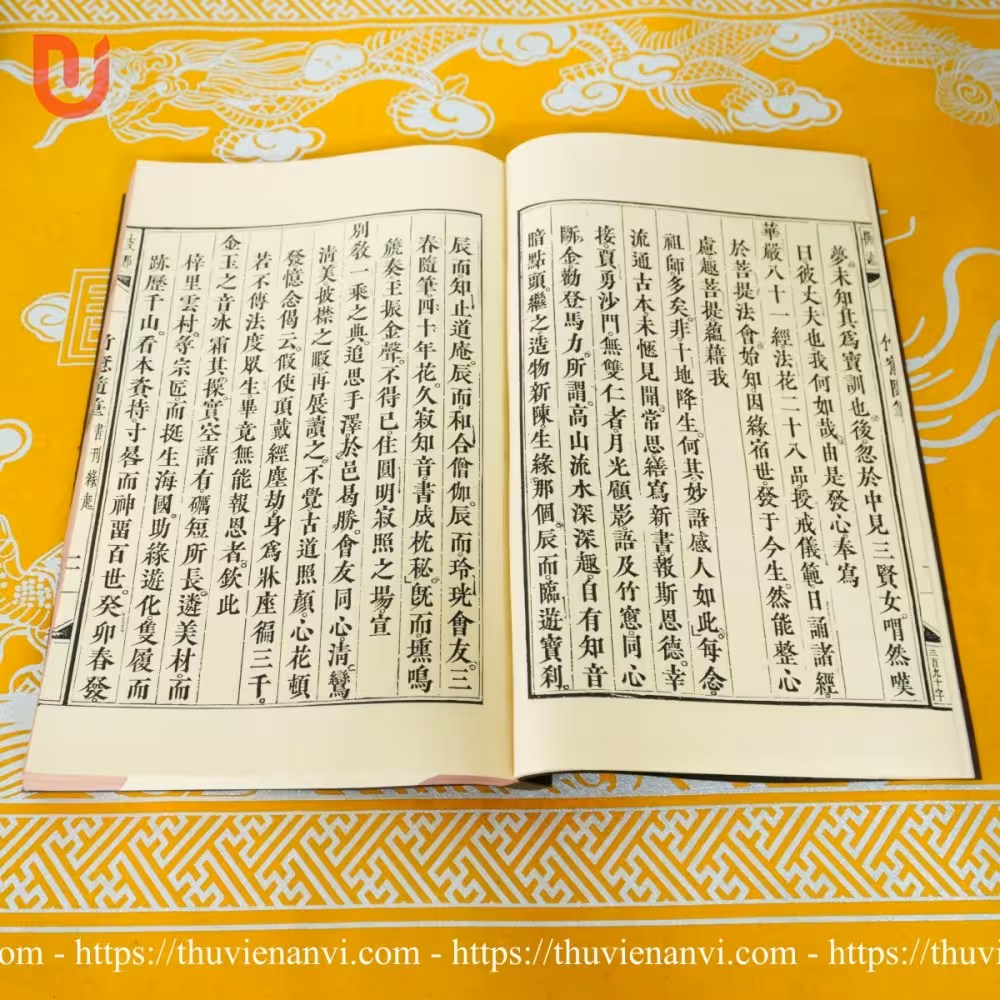 夢。未知其爲寶訓也。後忽於中見三賢女。喟然嘆
曰彼丈夫也我何如哉。由是發心奉寫
華嚴八十一經法花二十八品授戒儀範日誦諸經。
於菩提法會始知因緣宿世。發于今生。然能整心
慮趣菩提蘊藉我
祖師多矣。非十地降生。何其妙語感人如此。每念。
流通古本未愜見聞。常思繕寫新書。報斯恩德。幸
接賁勇沙門。無雙仁者。月光顧影。語及竹窻。同心
斷金勸登馬力。所謂高山流水深深趣。自有知音
暗點頭。繼之造物新陳。生緣那個。辰而臨遊寶剎。
三百九十字
辰而知止道庵。辰而和合僧伽。辰而玲珖會友。三
春隨筆。四十年花。久寂知音書成枕秘。旣而壎鳴
篪奏玉振金聲。不得已住圓明寂照之場。宣
別敎一乘之典。追思手澤於邑曷勝。會友同心。淸鸞
淸美披襟之暇再展讀之。不覺古道照顏。心花頓
發憶念偈云。假使頂戴經塵劫身爲牀座徧三千。
若不傳法度眾生畢竟無能報恩者。欽此
金玉之音冰霜其操。實空諸有。礪短所長。遴美材。而
梓里雲村。等宗匠。而挺生海國。助緣遊化。隻履而
跡歷千山。看本赍持寸晷而神畱百世。癸卯春發
隨筆 書刊緣起 二
om - https://thuvienanvi.com - https://thuvienanvi.com - https://thuvie